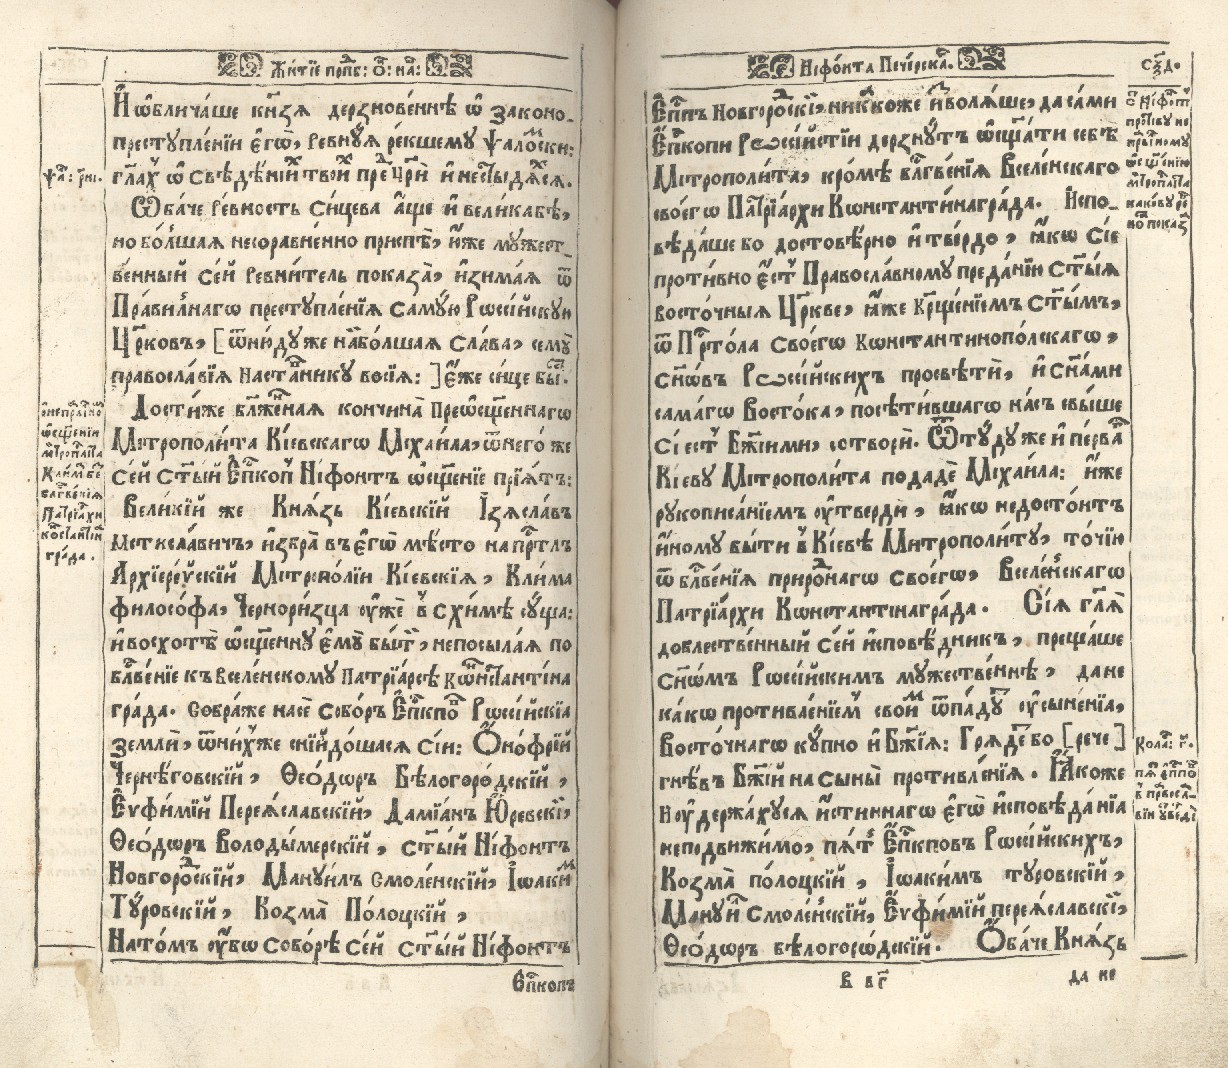 Житїе прпⷣб: ѻ҃ц҃: на́:
И҆ ѡ҆блича́ше кнѧ́зѧ дерзнове́ннѣ ѡ҆ законо-
преступле́нїи є҆гѡ̀, Ревнꙋ́ѧ ре́кшему Ѱалⷨоски:
гл҃ахъ ѡ҆ свѣдѣ́нїихъ твои́хъ преⷣ Цр҃и̑ и҆ не стыдѧ́хсѧ.
Ѻ҆ба́че Ревность си́цева а҆́ще и҆ вели́ка бѣ̀,
но бо́лшая несоравне́нно приспѣ̀, и҆́же мꙋ́жест-
венный се́й Ревни́тель показа̀, и҆зима́ѧ ѿ
Пра́вилнагѡ преступле́нїѧ самꙋ́ю Рѡссі́йскую
Цр҃ковь, [ѿню́дуже наибо́лшаѧ сла́ва, семꙋ̀
правосла́вїѧ Наста́внику восїѧ̀:] є҆́же си́це бы́сть.
Дости́же бл҃же́ннаѧ кончина̀ Преѡсщ҃е́ннагѡ
Мітрополи́та Кі́евскагѡ Міха́ила, ѿ него́же
се́й ст҃ы́й Є҆пⷭ҇копъ Ні́фонтъ ѡ҆сщ҃е́нїе прїѧ́тъ:
Вели́кїй же Кнѧ́зь Кі́евскїй І҆зѧсла́въ
Мстисла́вичъ, и҆збра̀ въ є҆гѡ̀ мѣ́сто на прⷭ҇то́лъ
А҆рхїере́йскїй Мітропо́лїи Кі́евскїѧ, Кли́ма
філосо́фа, Чернори́зца ᲂу҆жѐ въ схи́мѣ сꙋ́ща:
и҆ восхотѣ̀ ѡ҆сщ҃е́нну є҆мꙋ̀ бы́ти, не посыла́ѧ по
бл҃гве́нїе къ Вселе́нскому Патрїа́рсѣ Кѡнстанті́на
гра́да. Собра́же на се́ собо́ръ Є҆пⷭ҇кпѡⷡ Рѡссі́йскїѧ
земли̑, ѿ ни́хже снїйдо́шасѧ сі́и: Ѻ҆но́фрїй
Черне́говскїй, Ѳео́дѡръ Бѣлогоро́дскїй,
Є҆уфи́мїй Переѧ́славскїй, Дамїа́нъ Ю҆ревскі́й,
Ѳео́дѡръ Володы́мерскїй, ст҃ы́й Ні́фонтъ
Новгоро́дскїй, Мануи́лъ Смоле́нскїй, І҆ѡаки́мъ
Тꙋ́ровскїй, Козма̀ По́лоцкїй,
На то́мъ ᲂу҆́бѡ собо́рѣ се́й ст҃ы́й Ні́фонтъ
Є҆пⷭ҇копъ
Ѱа: рн҃і.
ѡ҆сщ҃е́нїи
мітропⷧ҇та
Кли́м бе
бл҃гве́нїѧ
Патрїа́рхи
Костанті́н
гра́да.
Ні́фонта Пече́рскаⷢ.
Сѯ҃д.
Є҆пⷭ҇пъ Новгоро́дскїй, ника́коже и҆зволѧ́ше, да са́ми
Є҆пⷭ҇копи Рѡссі́йстїи дерзнꙋ́тъ ѡ҆сщ҃а́ти себѣ̀
Мітрополи́та, кромѣ̀ бл҃гве́нїѧ Вселе́нскаго
своегѡ̀ Патрїа́рхи Кѡнстанті́награ́да. И҆спо-
вѣ́даше бо достовѣ́рно и҆ тве́рдо, ꙗ҆́кѡ сїѐ
проти́вно є҆́стъ Правосла́вному преда́нїю ст҃ы́ѧ
восто́чныѧ Цр҃кве, ꙗ҆́же Крⷭ҇ще́нїемъ ст҃ы́мъ,
ѿ Прⷭ҇то́ла своегѡ̀ Кѡнстантинопо́лскагѡ,
сн҃ѡ́въ Рѡссі́йскихъ просвѣтѝ, и҆ сн҃а́ми
самагѡ̀ Восто́ка, посѣти́вшагѡ на́съ свы́ше
сі є҆́стъ Бж҃іими, сотворѝ. Ѿтꙋ́дуже и҆ пе́рва
Кі́еву Мітрополи́та подадѐ Міха́ила: и҆́же
рукописа́нїемъ ᲂу҆твердѝ, ꙗ҆́кѡ не досто́итъ
и҆́ному бы́ти в̾ Кі́евѣ Митрополи́ту, то́чїю
ѿ бл҃ве́нїѧ приро́днаго своегѡ̀, Вселе́нскагѡ
Патрїа́рхи Кѡнстантінагра́да. Сїѧ̑ гл҃ѧ
до́блественный се́й и҆сповѣ́дникъ, преща́ше
сн҃ѡ́мъ Рѡссі́йскимъ мꙋ́жественнѣ, да не
ка́кѡ противле́нїемъ свои́мъ ѿпадꙋ́тъ ᲂу҆сыне́нїѧ,
Восто́чнагѡ кꙋ́пно и҆ Бж҃їѧ: Грѧде́тъ бо [речѐ]
гнѣ́въ Бж҃їй на сы́ны противле́нїѧ. Ꙗ҆́коже
и҆ ᲂу҆держа́хусѧ и҆́стиннагѡ є҆гѡ̀ и҆сповѣ́данїѧ
неподви́жимо, пѧ́тъ Є҆пⷭ҇кпов Рѡссі́йскихъ,
Козма̀ по́лоцкїй, І҆ѡаки́мъ тꙋ́ровскїй,
Мануи́лъ Смоле́нскїй, Є҆уфи́мїй переѧ́славскїй,
Ѳео́дѡръ бѣлогорѡ́дскїй. Ѻ҆ба́че Кнѧ́зь
В вг҃
да не
С Ні́фонт
проти́ву не
пра́вному
ѡ҆сщ҃е́нїю
мітропⷧ҇та
Кола: г҃.
пѧ́ть є҆пⷭ҇пѡ
в̾ правосла́-
вїи